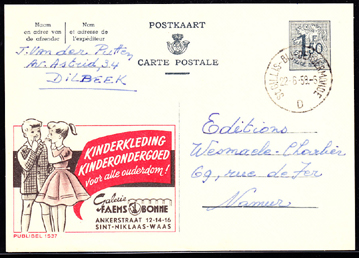 POSTKAART
CARTE POSTALE
Naam en adres van de afzender
Nom et adresse de l'expéditeur
J. Van der Putten
Av. Astrid, 34
DILBEEK
1F50
KINDERKLEDING
KINDERONDERGOED
voor alle ouderdom!
Galerie
FAENS BONNE
ANKERSTRAAT 12-14-16
SINT-NIKLAAS-WAAS
PUBLIBEL 1537
Editions
Wesmaele-Charlier
69, rue de Fer
Namur